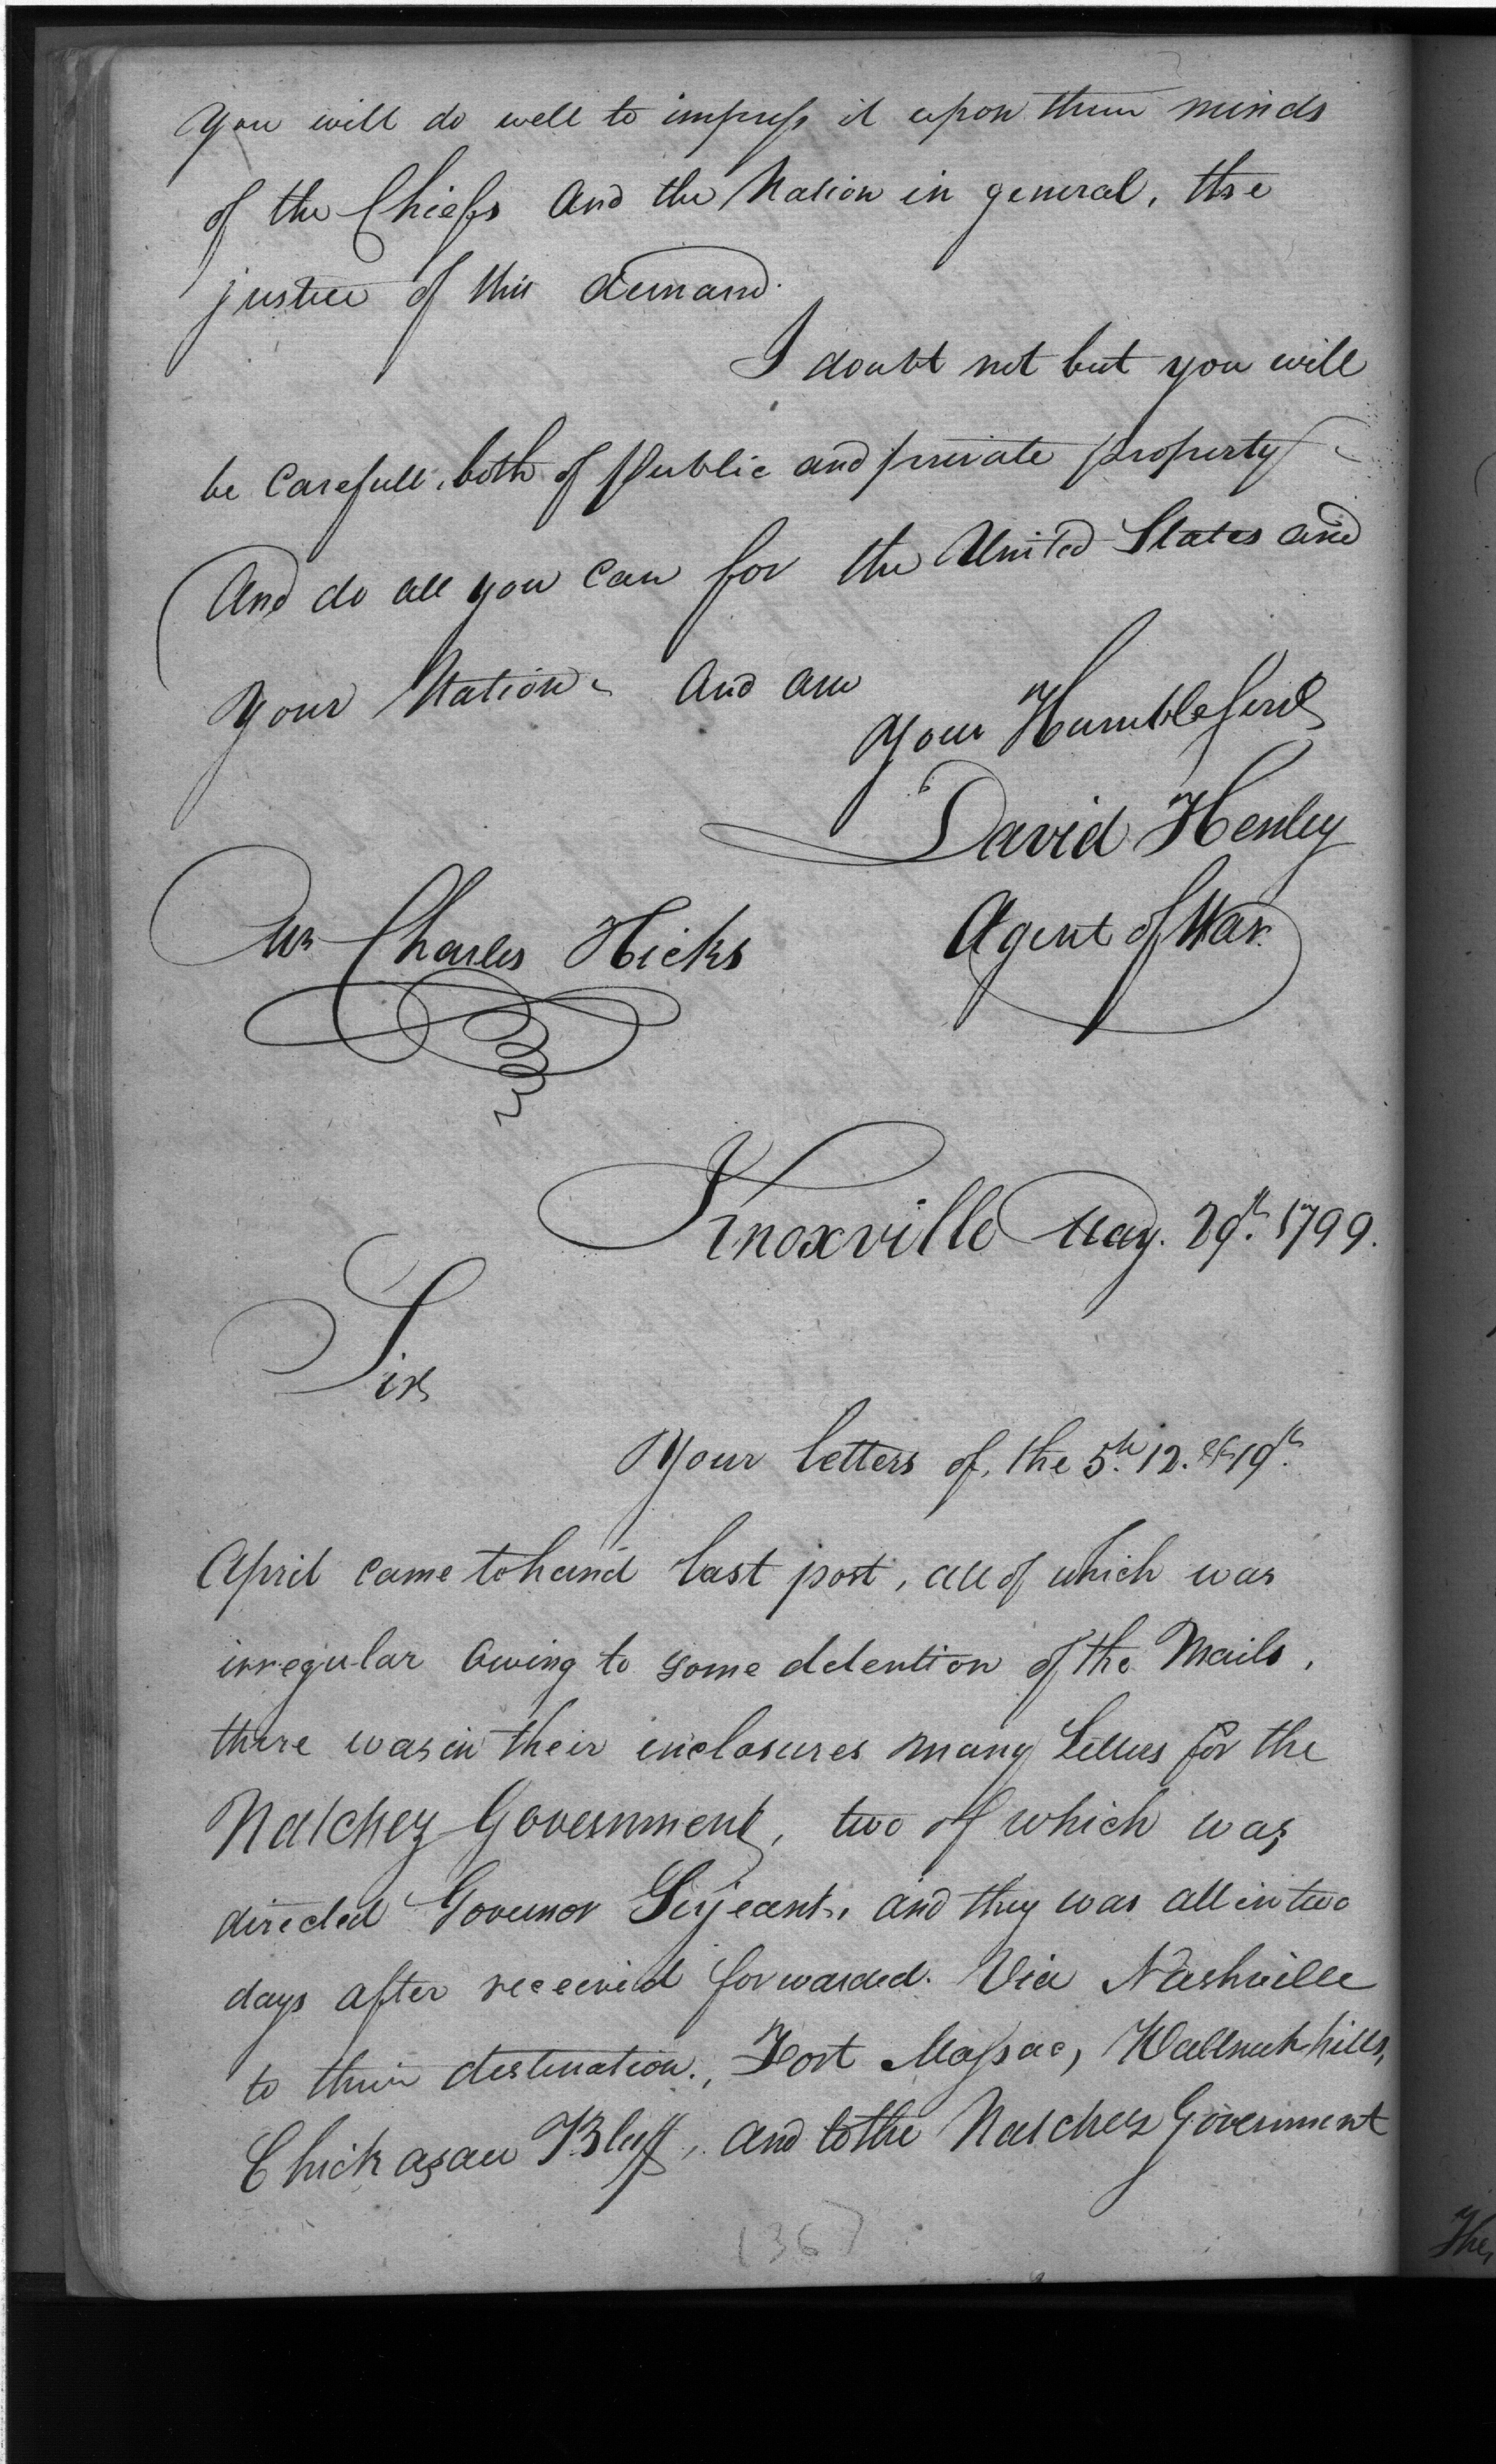 You will do well to impress it upon their minds
of the Chiefs and the Nation in general, the
justice of this demand.
I doubt not but you will
be Carefull, both of Public and private property
And do all you can for the United States and
your Nation. And am
Your Humble Servt
David Henley
Agent of War.
Mr Charles Hicks
Knoxville May. 29th. 1799.
Sir
Your letters of, the 5th. 12. & 19th.
April came to hand last post, all of which was
irregular owing to some detention of the Mails,
there was in their inclosures many Letters for the
Natchez Government, two of which was
directed Governor Serjeant, and they was all in two
days after received forwarded. Via Nashville
to their destination., Fort Massac, Wallnut hills,
Chickasaw Bluff, and to the Natchez Government
(36)
The